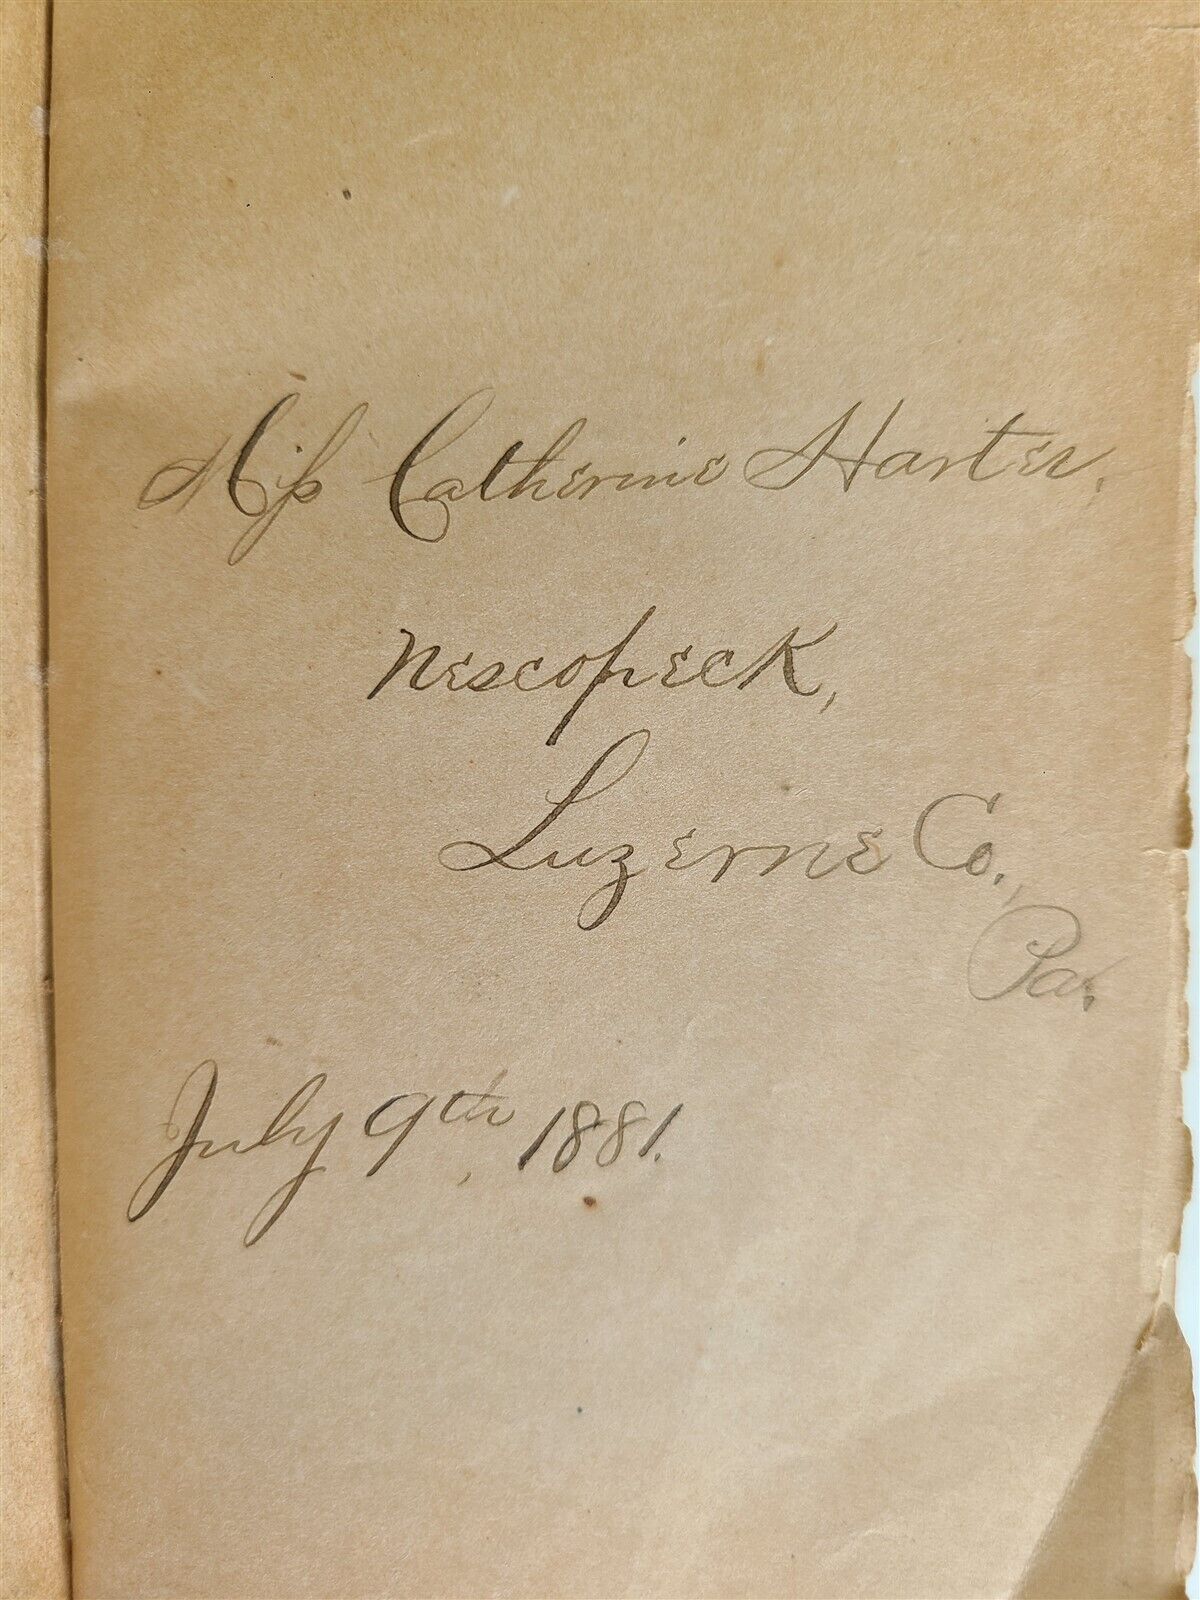 Miss Catherine Harter.
Nescopeck,
Luzerne Co.,
Pa.
July 9th, 1881.